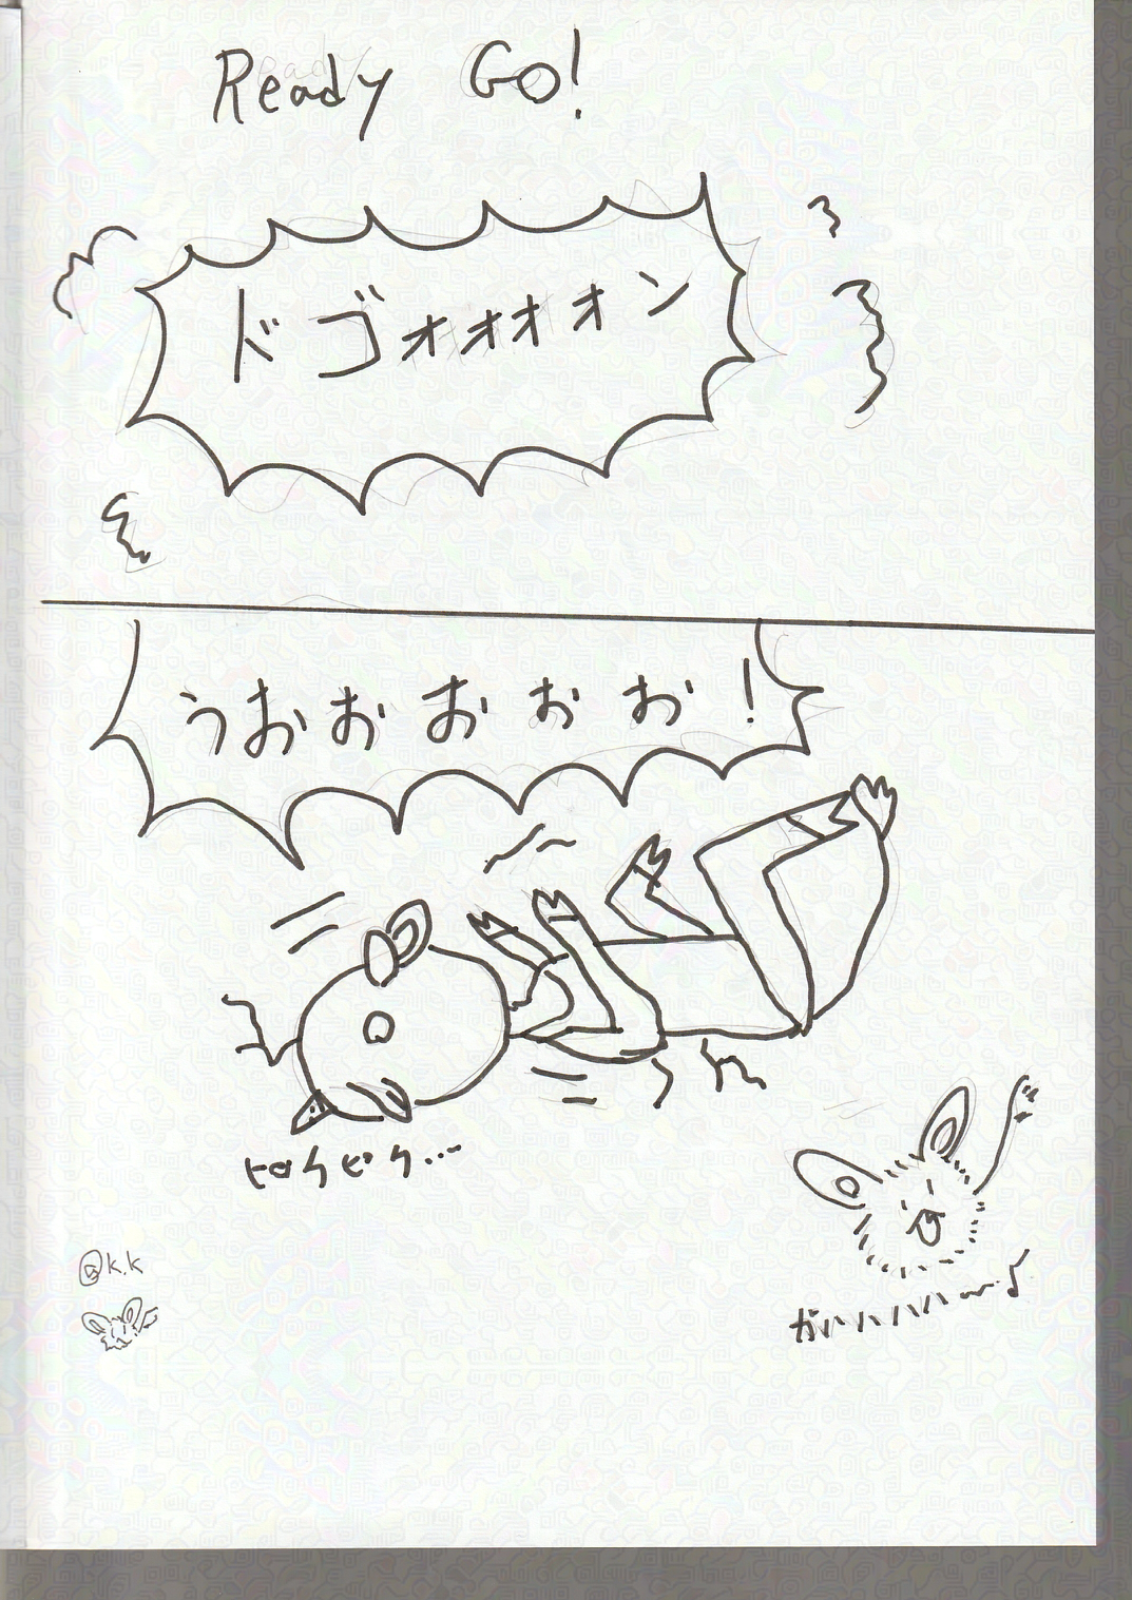 Ready Go!
ドゴォォォォン
うおおおおお！
ピクピク…
ガハハハハ〜♪
@k.k